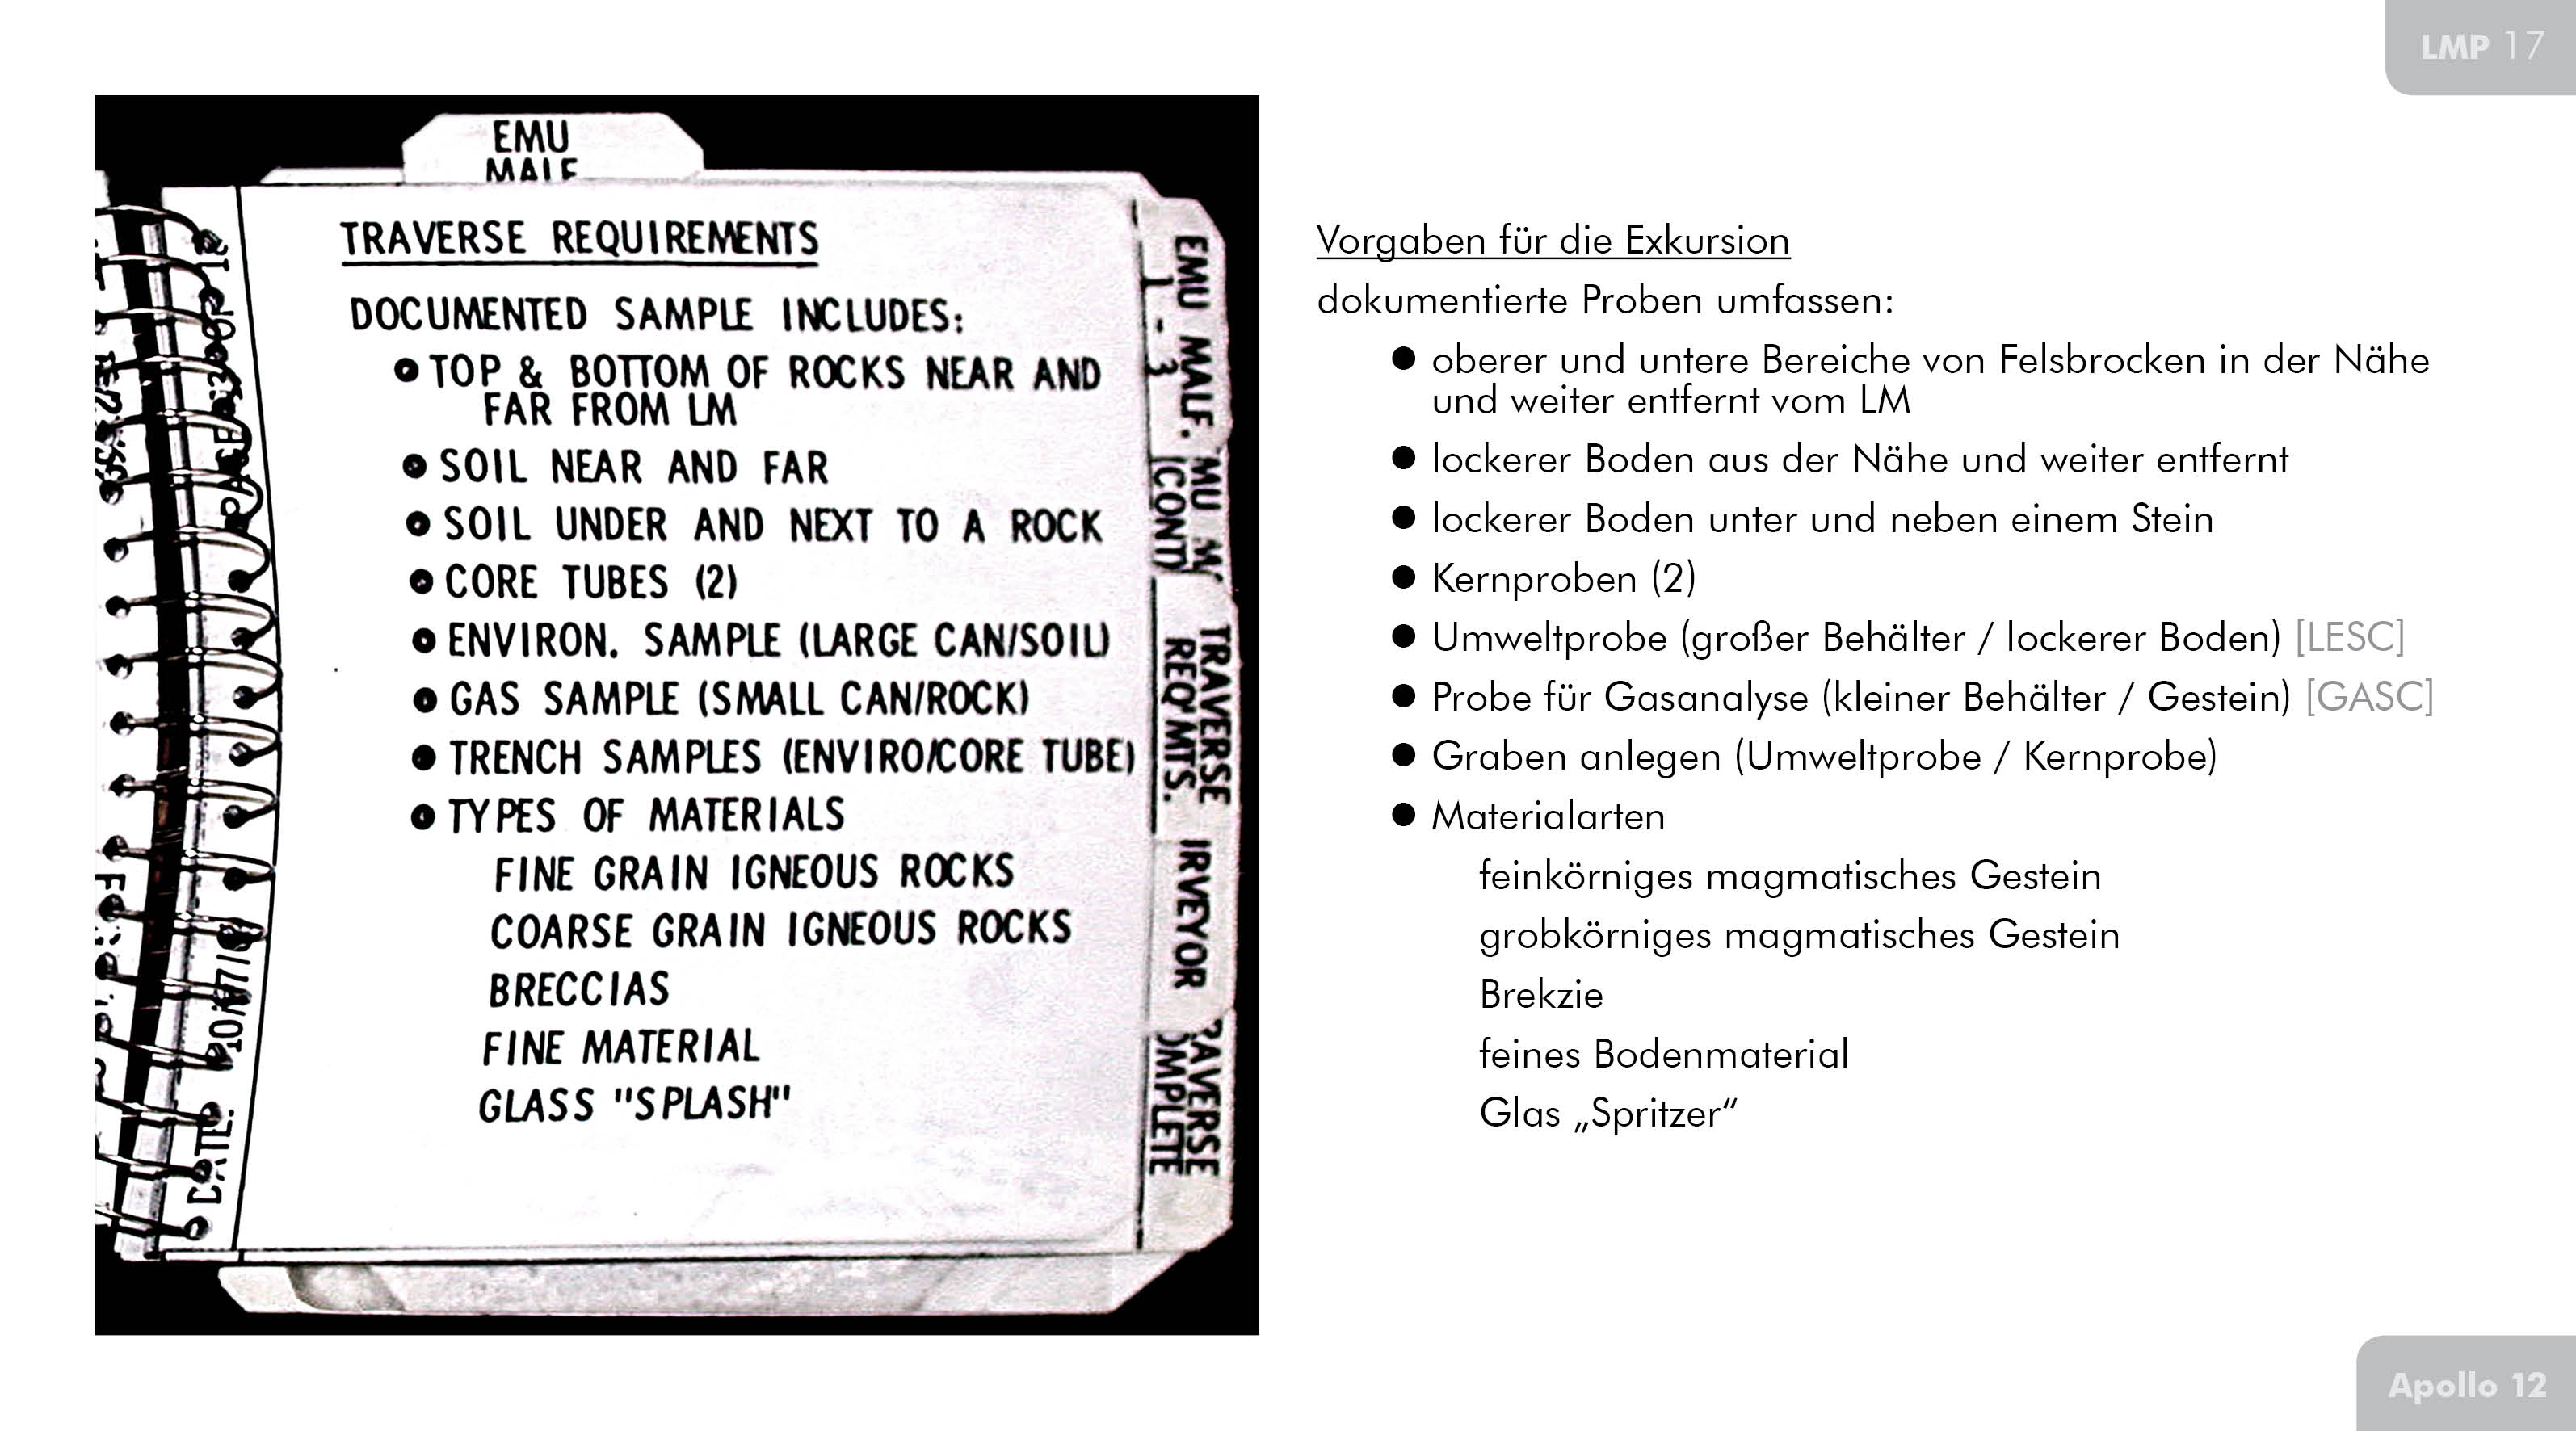 LMP 17
EMU
TRAVERSE REQUIREMENTS
DOCUMENTED SAMPLE INCLUDES:
• TOP & BOTTOM OF ROCKS NEAR AND
FAR FROM LM
• SOIL NEAR AND FAR
• SOIL UNDER AND NEXT TO A ROCK
• CORE TUBES (2)
• ENVIRON. SAMPLE (LARGE CAN/SOIL)
• GAS SAMPLE (SMALL CAN/ROCK)
• TRENCH SAMPLES (ENVIRO/CORE TUBE)
• TYPES OF MATERIALS
FINE GRAIN IGNEOUS ROCKS
COARSE GRAIN IGNEOUS ROCKS
BRECCIAS
FINE MATERIAL
GLASS "SPLASH"
EMU MALF.
1 - 3
(CONT)
TRAVERSE
REQ'MTS.
Vorgaben für die Exkursion
dokumentierte Proben umfassen:
● oberer und untere Bereiche von Felsbrocken in der Nähe
und weiter entfernt vom LM
● lockerer Boden aus der Nähe und weiter entfernt
● lockerer Boden unter und neben einem Stein
● Kernproben (2)
● Umweltprobe (großer Behälter / lockerer Boden) [LESC]
● Probe für Gasanalyse (kleiner Behälter / Gestein) [GASC]
● Graben anlegen (Umweltprobe / Kernprobe)
● Materialarten
feinkörniges magmatisches Gestein
grobkörniges magmatisches Gestein
Brekzie
feines Bodenmaterial
Glas „Spritzer“
Apollo 12